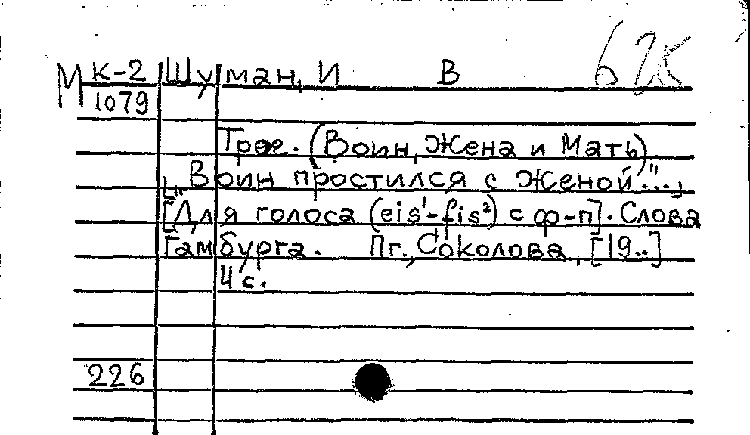 62к
М К-2 Шуман, И В
1079
Трое. (Воин, Жена и Мать)
„Воин простился с женой"...
[Для голоса (eis¹-fis²) с ф-п]. Слова
Гамбурга. Пг., Соколова, [19..]
4 с.
226